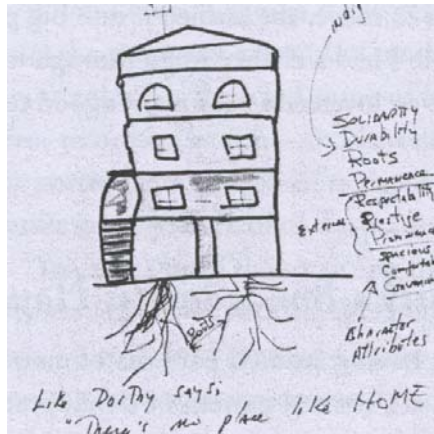 Solidarity
Durability
Roots
Permanence
Respectability
External
Prestige
Prominence
Spacious
Comfortable
Character
Attributes
Roots
Like Dorthy says:
"There's no place like HOME